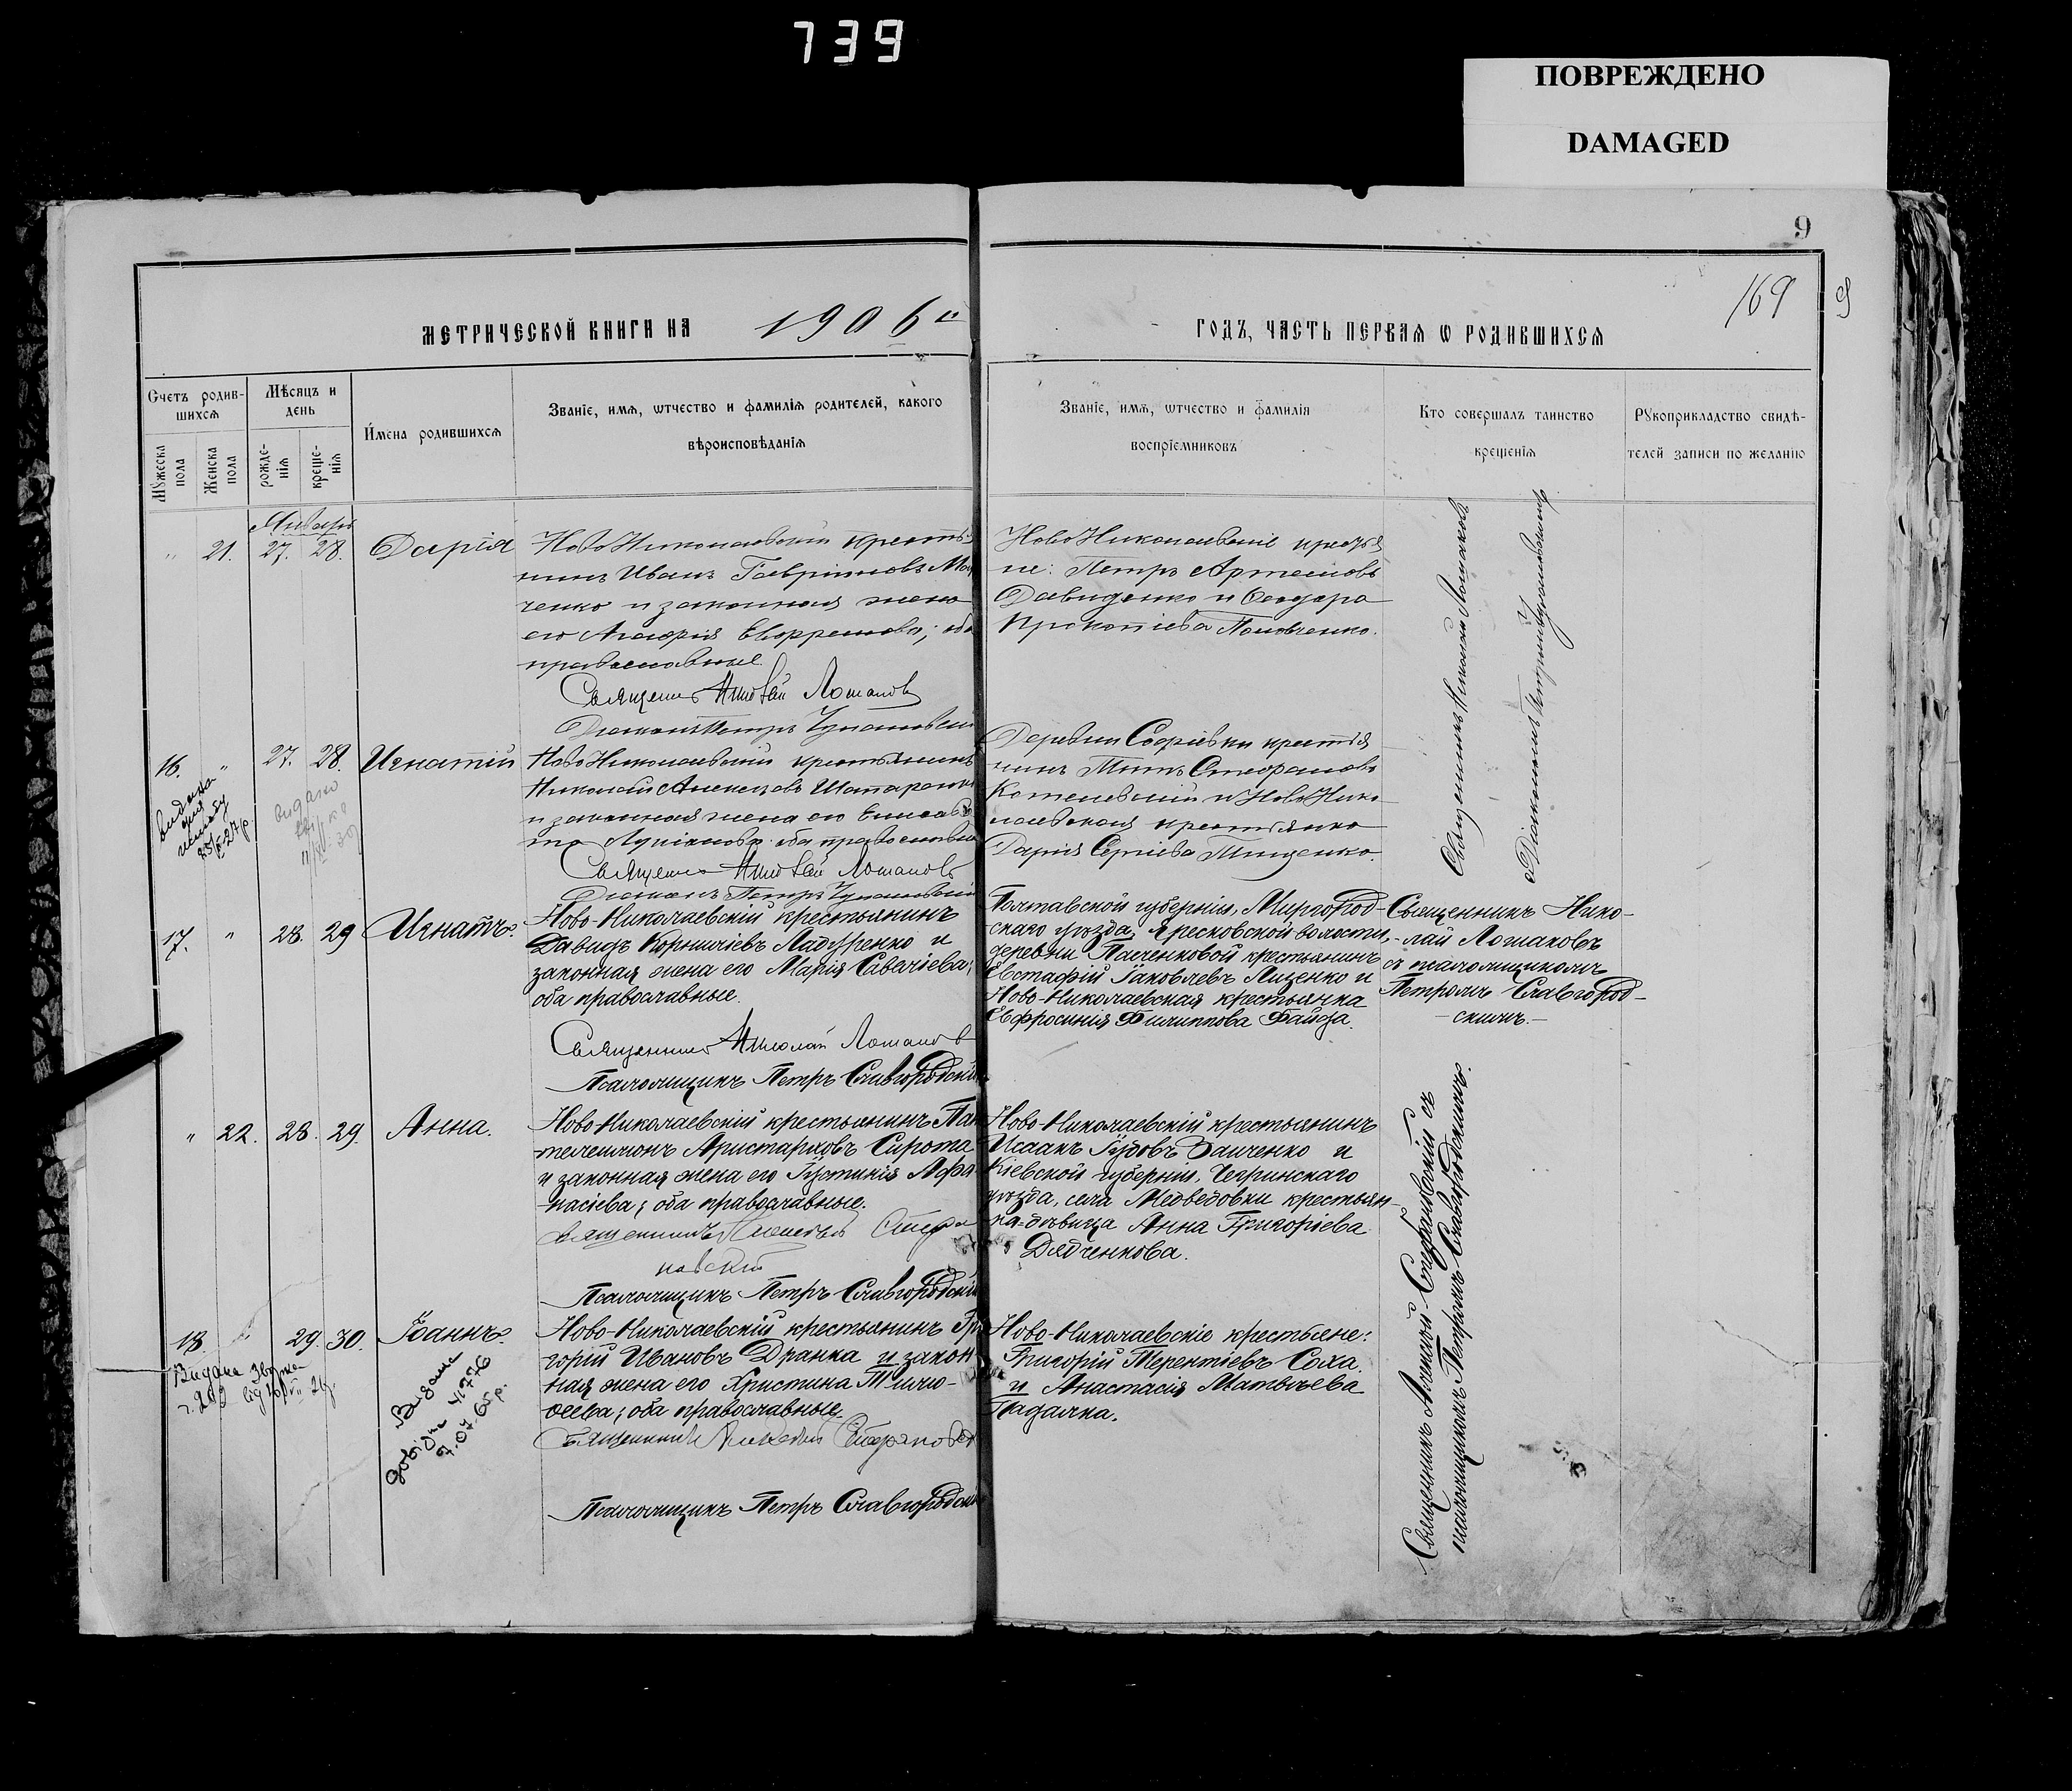 739
ПОВРЕЖДЕНО
DAMAGED
9
169
9
МЕТРИЧЕСКОЙ КНИГИ НА 1906й
ГОДЪ, ЧАСТЬ ПЕРВАЯ Ѡ РОДИВШИХСЯ
Счетъ родив-
шихся
Мѣсяцъ и
день
Имена родившихся
Званіе, имя, ѡтчество и фамилія родителей, какого
вѣроисповѣданія
Мужеска
пола
Женска
пола
рожде-
нія
креще-
нія
Званіе, имя, ѡтчество и фамилія
воспріемниковъ
Кто совершалъ таинство
крещенія
Рукоприкладство свидѣ-
телей записи по желанію
Январь
" 21. 27. 28. Дарія
НовоНиколаевскій крестья
нинъ Иванъ Гавріиловъ
ченко и законная жена
его Агафія Ефремова; оба
православные.
Священникъ Николай Лошаковъ
Діаконъ Петръ
НовоНиколаевскіе крестья
не: Петръ Артемовъ
Давиденко и Феодора
Прокопіева
Священникъ Николай Лошаковъ
съ Діакономъ Петромъ
16. " 27. 28. Игнатій
НовоНиколаевскій крестьянинъ
Николай Алексѣевъ
и законная жена его Елисаве
та Лукіанова; оба православные
Священникъ Николай Лошаковъ
Діаконъ Петръ
Деревни Софіевки крестья
нинъ Титъ Стефановъ
и НовоНико
лаевская крестьянка
Дарія Сергіева Тищенко.
видано
видана
17. " 28. 29 Игнатъ.
Ново-Николаевскій крестьянинъ
Давидъ Корниліевъ Ладуренко и
законная жена его Марія Савеліева;
оба православные.
Священникъ Николай Лошаковъ
Псаломщикъ Петръ Славгородскій
Полтавской губерніи, Миргород-
скаго уѣзда, Яресковской волости,
деревни Пасченковой крестьянинъ
Евстафій Іаковлевъ Лиценко и
Ново-Николаевская крестьянка
Евфросинія Филиппова Файда.
Священникъ Нико-
лай Лошаковъ
съ псаломщикомъ
Петромъ Славгород-
скимъ.-
" 22. 28. 29. Анна.
Ново-Николаевскій крестьянинъ Пан
телеимонъ Аристарховъ Сирота
и законная жена его Іустинія Афа
насіева; оба православные.
Священникъ Алексѣй Стефа
новскій
Псаломщикъ Петръ Славгородскій
Ново-Николаевскій крестьянинъ
Исаакъ Іудовъ Заиченко и
Кіевской губерніи, Чигринскаго
уѣзда, села Медведовки крестьян-
ка-дѣвица Анна Григоріева
Дядченкова.
Священникъ Алексѣй Стефановскій съ
псаломщикомъ Петромъ Славгородскимъ.
18. " 29. 30. Іоаннъ.
Ново-Николаевскій крестьянинъ Гри
горій Ивановъ Дранка и закон
ная жена его Христина Тимо-
феева; оба православные.
Священникъ Алексѣй Стефановскій
Псаломщикъ Петръ Славгородск
Ново-Николаевскіе крестьяне:
Григорій Терентіевъ Соха
и Анастасія Матвѣева
Падалка.
Видана
Видана
довідка 4.776
9.07.65р.